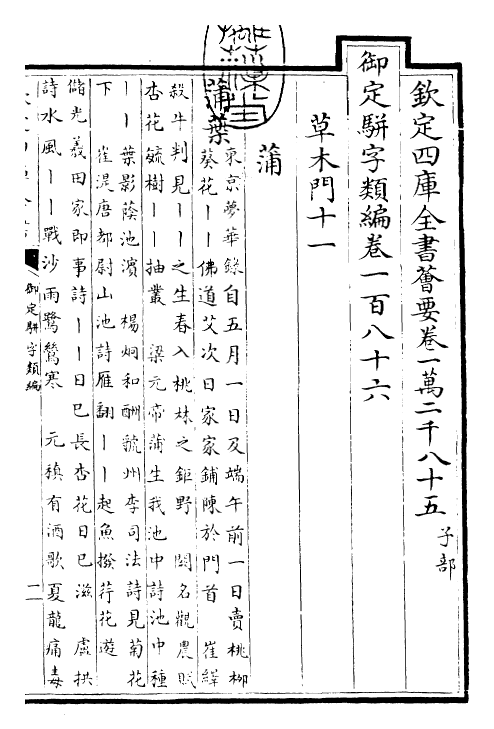 欽定四庫全書薈要卷一萬二千八十五　子部
御定駢字類編卷一百八十六
草木門十一
蒲
蒲葉
東京夢華錄自五月一日及端午前一日賣桃柳
葵花丨丨佛道艾次日家家鋪陳於門首　崔繹
殺牛判見丨丨之生春入桃妹之鉅野　闕名觀農賦
杏花毓樹丨丨抽叢　梁元帝蒲生我池中詩池中種
丨丨葉影蔭池濱　楊炯和酬虢州李司法詩見菊花
下　崔湜唐都尉山池詩雁翻丨丨起魚撥荇花遊
儲光羲田家即事詩丨丨日已長杏花日已滋　盧拱
詩水風丨丨戰沙雨鷺鶿寒　元稹有酒歌夏龍痛毒
御定駢字類編
一